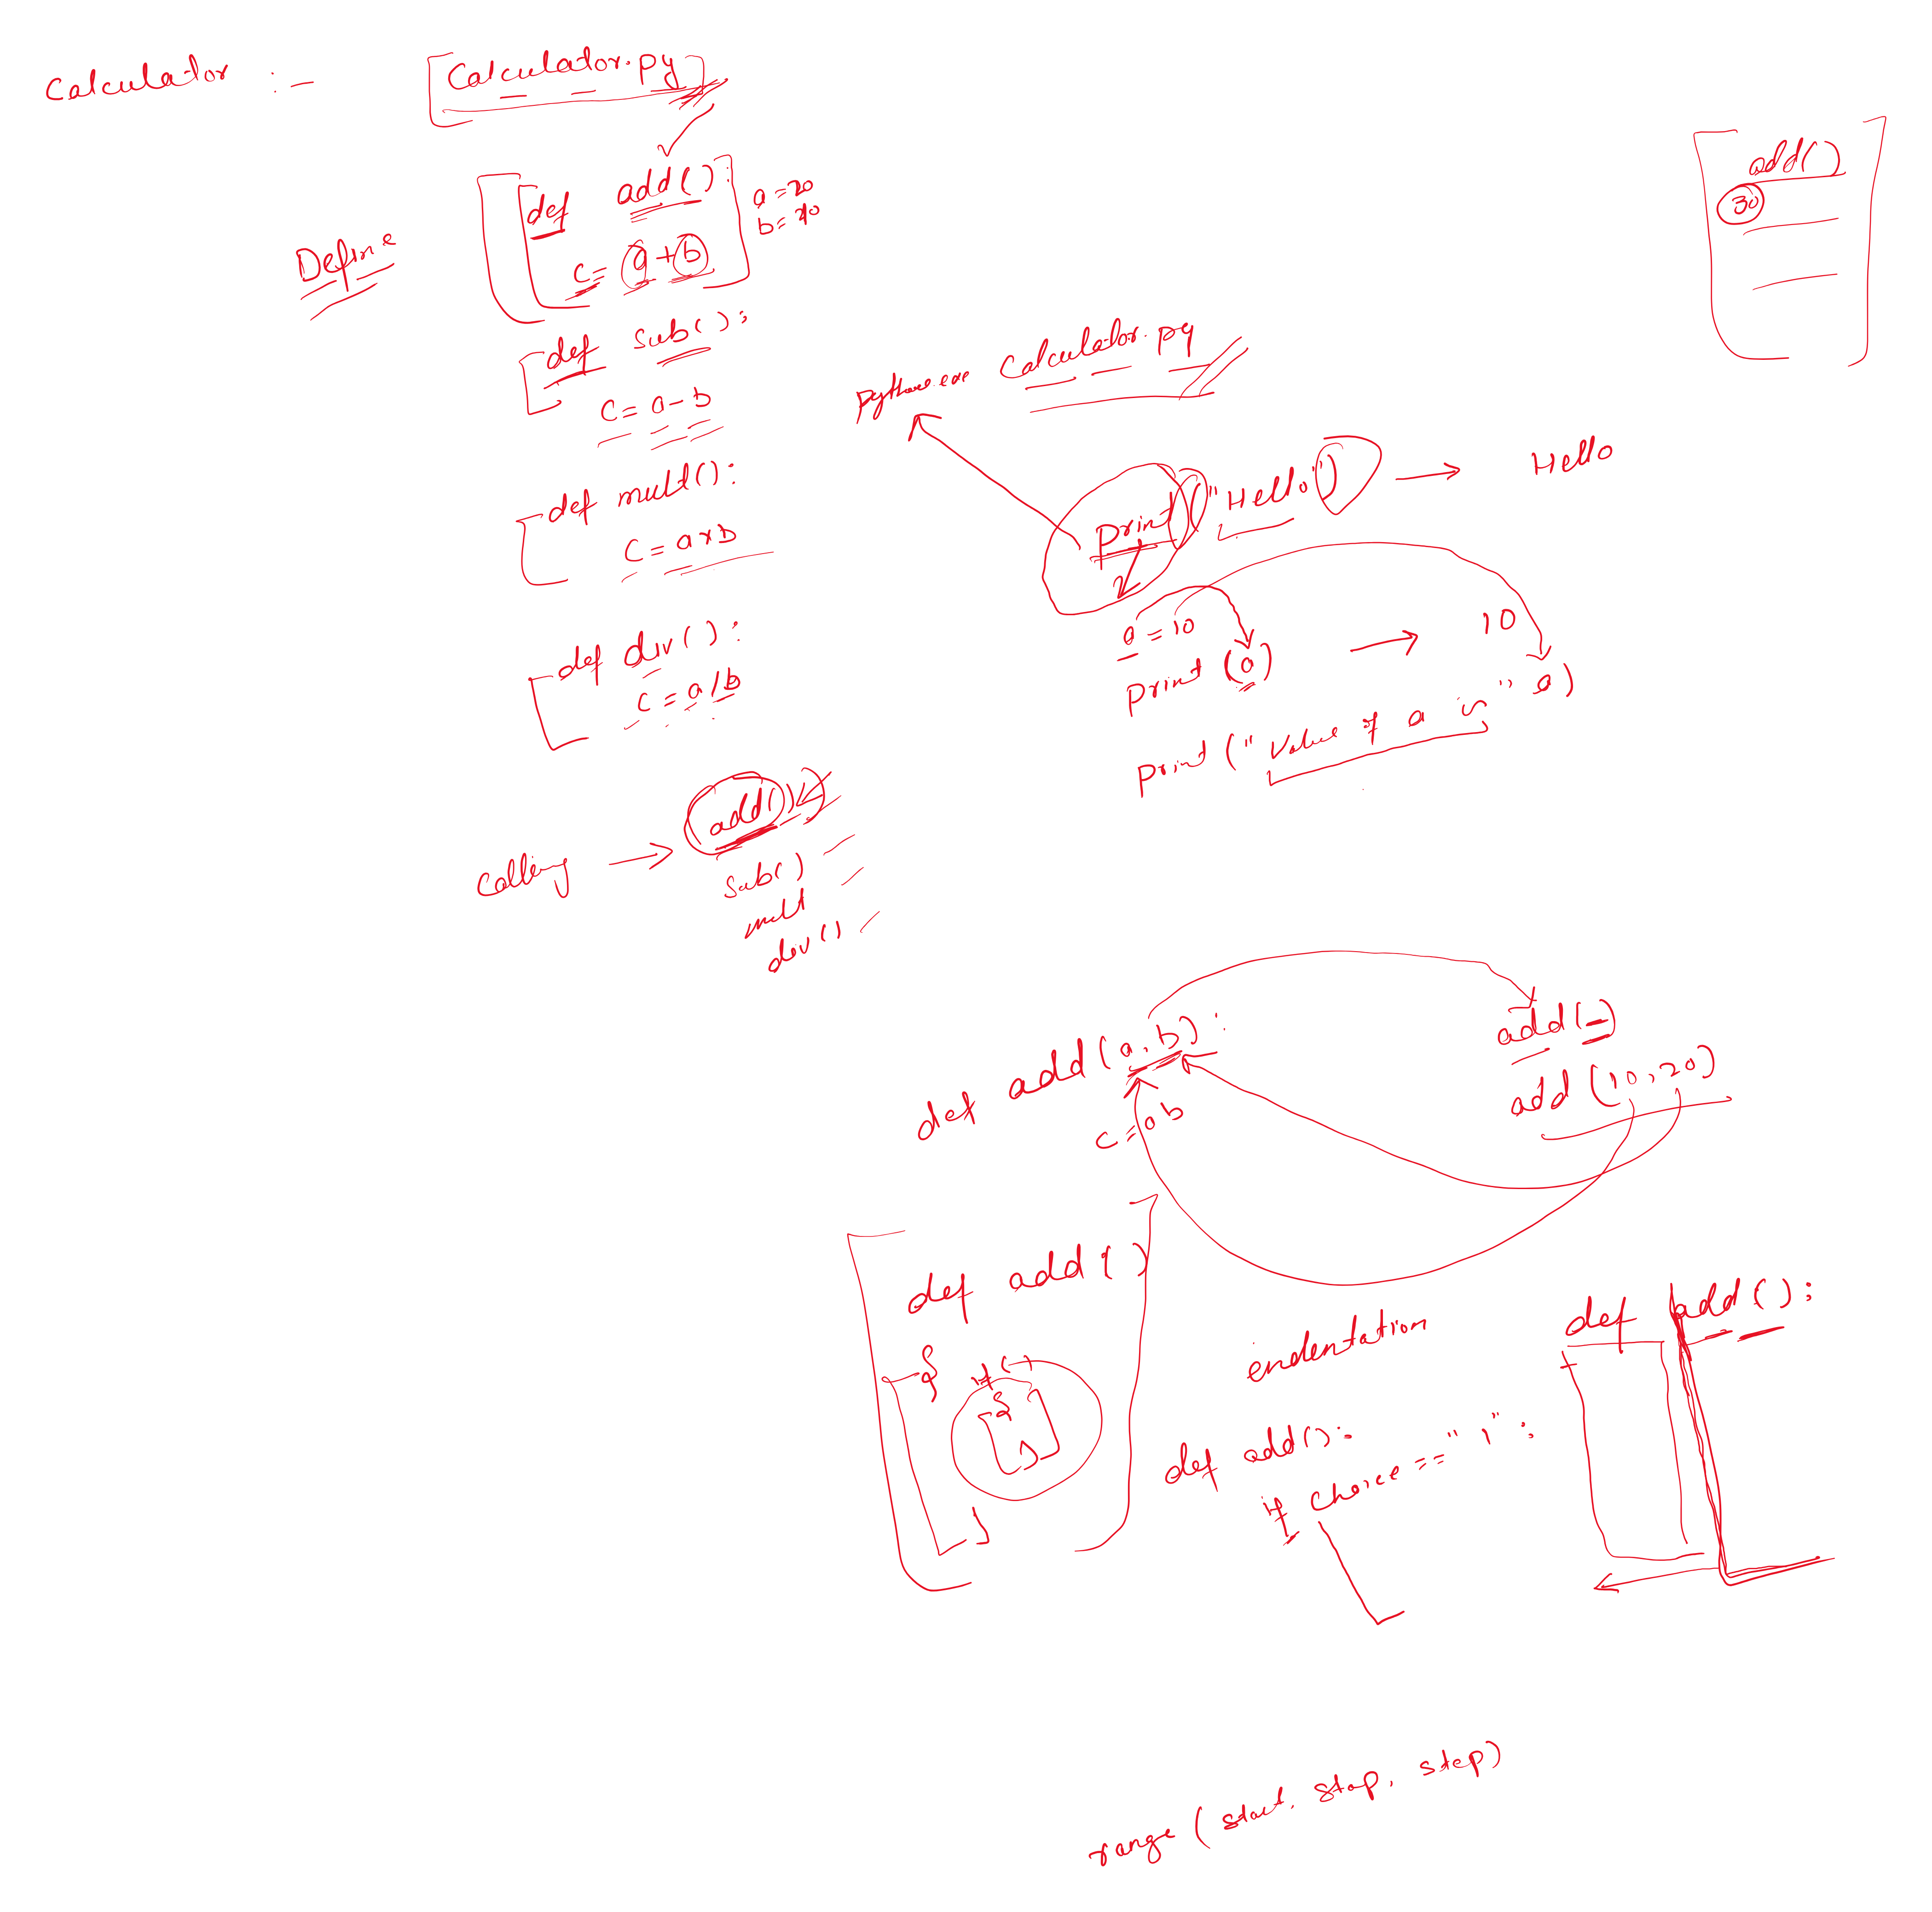 Calculator :-
Calculator.py
def add():
a=20
b=10
Define
c= a+b
def sub():
c=a-b
def mult():
c=a*b
def div():
c=a/b
Calling → add()
sub()
mult
div()
add()
30
Python.exe Calculator.py
print("Hello") → Hello
a=10
print(a) → 10
print("Value of a is" a)
def add(a,b):
c=ab
add(-)
add(10,20)
def add()
{
if()
{
}
}
endentation
def add():
if choice == "1":
def add():
range(start, stop, step)